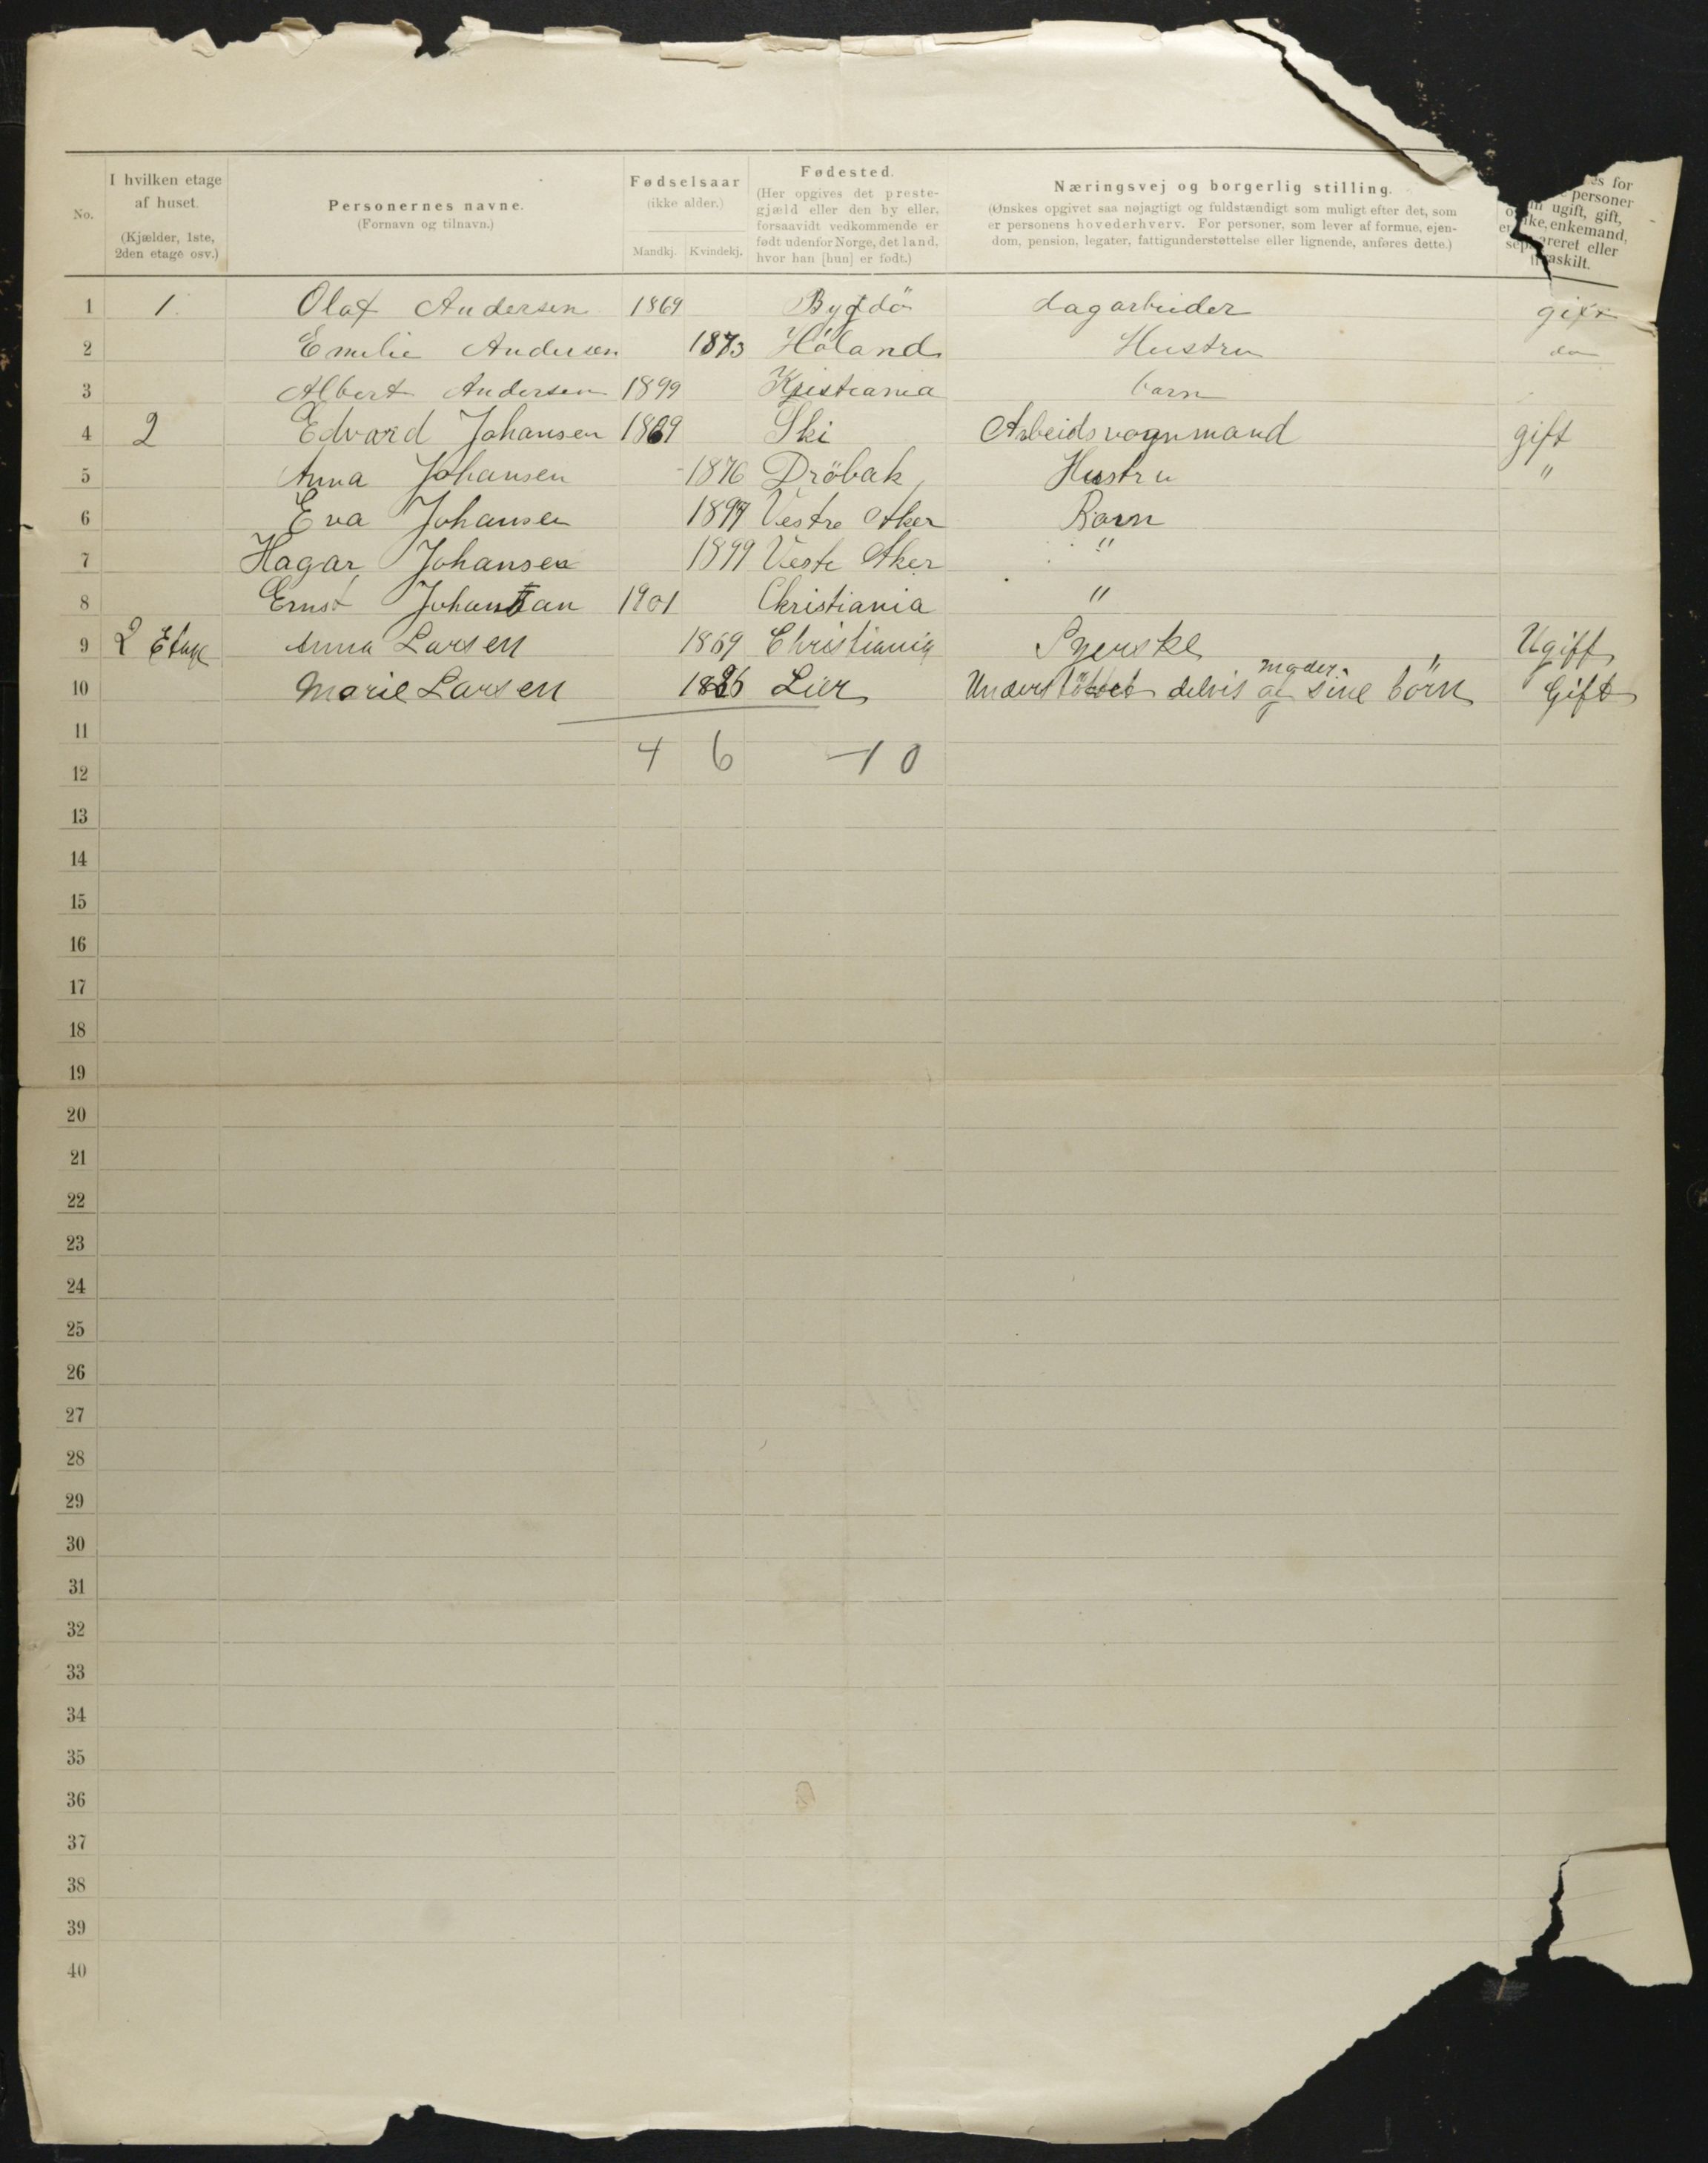 No.
I hvilken etage af huset. (Kjælder, 1ste, 2den etage osv.)
Personernes navne. (Fornavn og tilnavn.)
Fødselsaar (ikke alder.) Mandkj. Kvindekj.
Fødested. (Her opgives det prestegjæld eller den by eller, forsaavidt vedkommende er født udenfor Norge, det land, hvor han [hun] er født.)
Næringsvej og borgerlig stilling.
(Ønskes opgivet saa nøjagtigt og fuldstændigt som muligt efter det, som
er personens hovederhverv. For personer, som lever af formue, ejen-
dom, pension, legater, fattigunderstøttelse eller lignende, anføres dette.)
for
personer
ugift, gift,
enkemand,
eller
1 1. Olaf Andersen 1869 Bygdö dagarbeider gift
2 Emilie Andersen 1873 Höland Hustru do
3 Albert Andersen 1899 Kristiania barn
4 2 Edvard Johansen 1869 Ski Arbeidsvognmand gift
5 Anna Johansen 1876 Dröbak Hustru "
6 Eva Johansen 1897 Vestre Aker Barn
7 Hagar Johansen 1899 Veste Aker "
8 Ernst 1901 Christiania "
9 2 Etage Anna Larsen 1869 Christiania Syerske Ugift
10 Marie Larsen Lier Understöttet delvis af sine börn moder. Gift
11
4 6 10
12
13
14
15
16
17
18
19
20
21
22
23
24
25
26
27
28
29
30
31
32
33
34
35
36
37
38
39
40